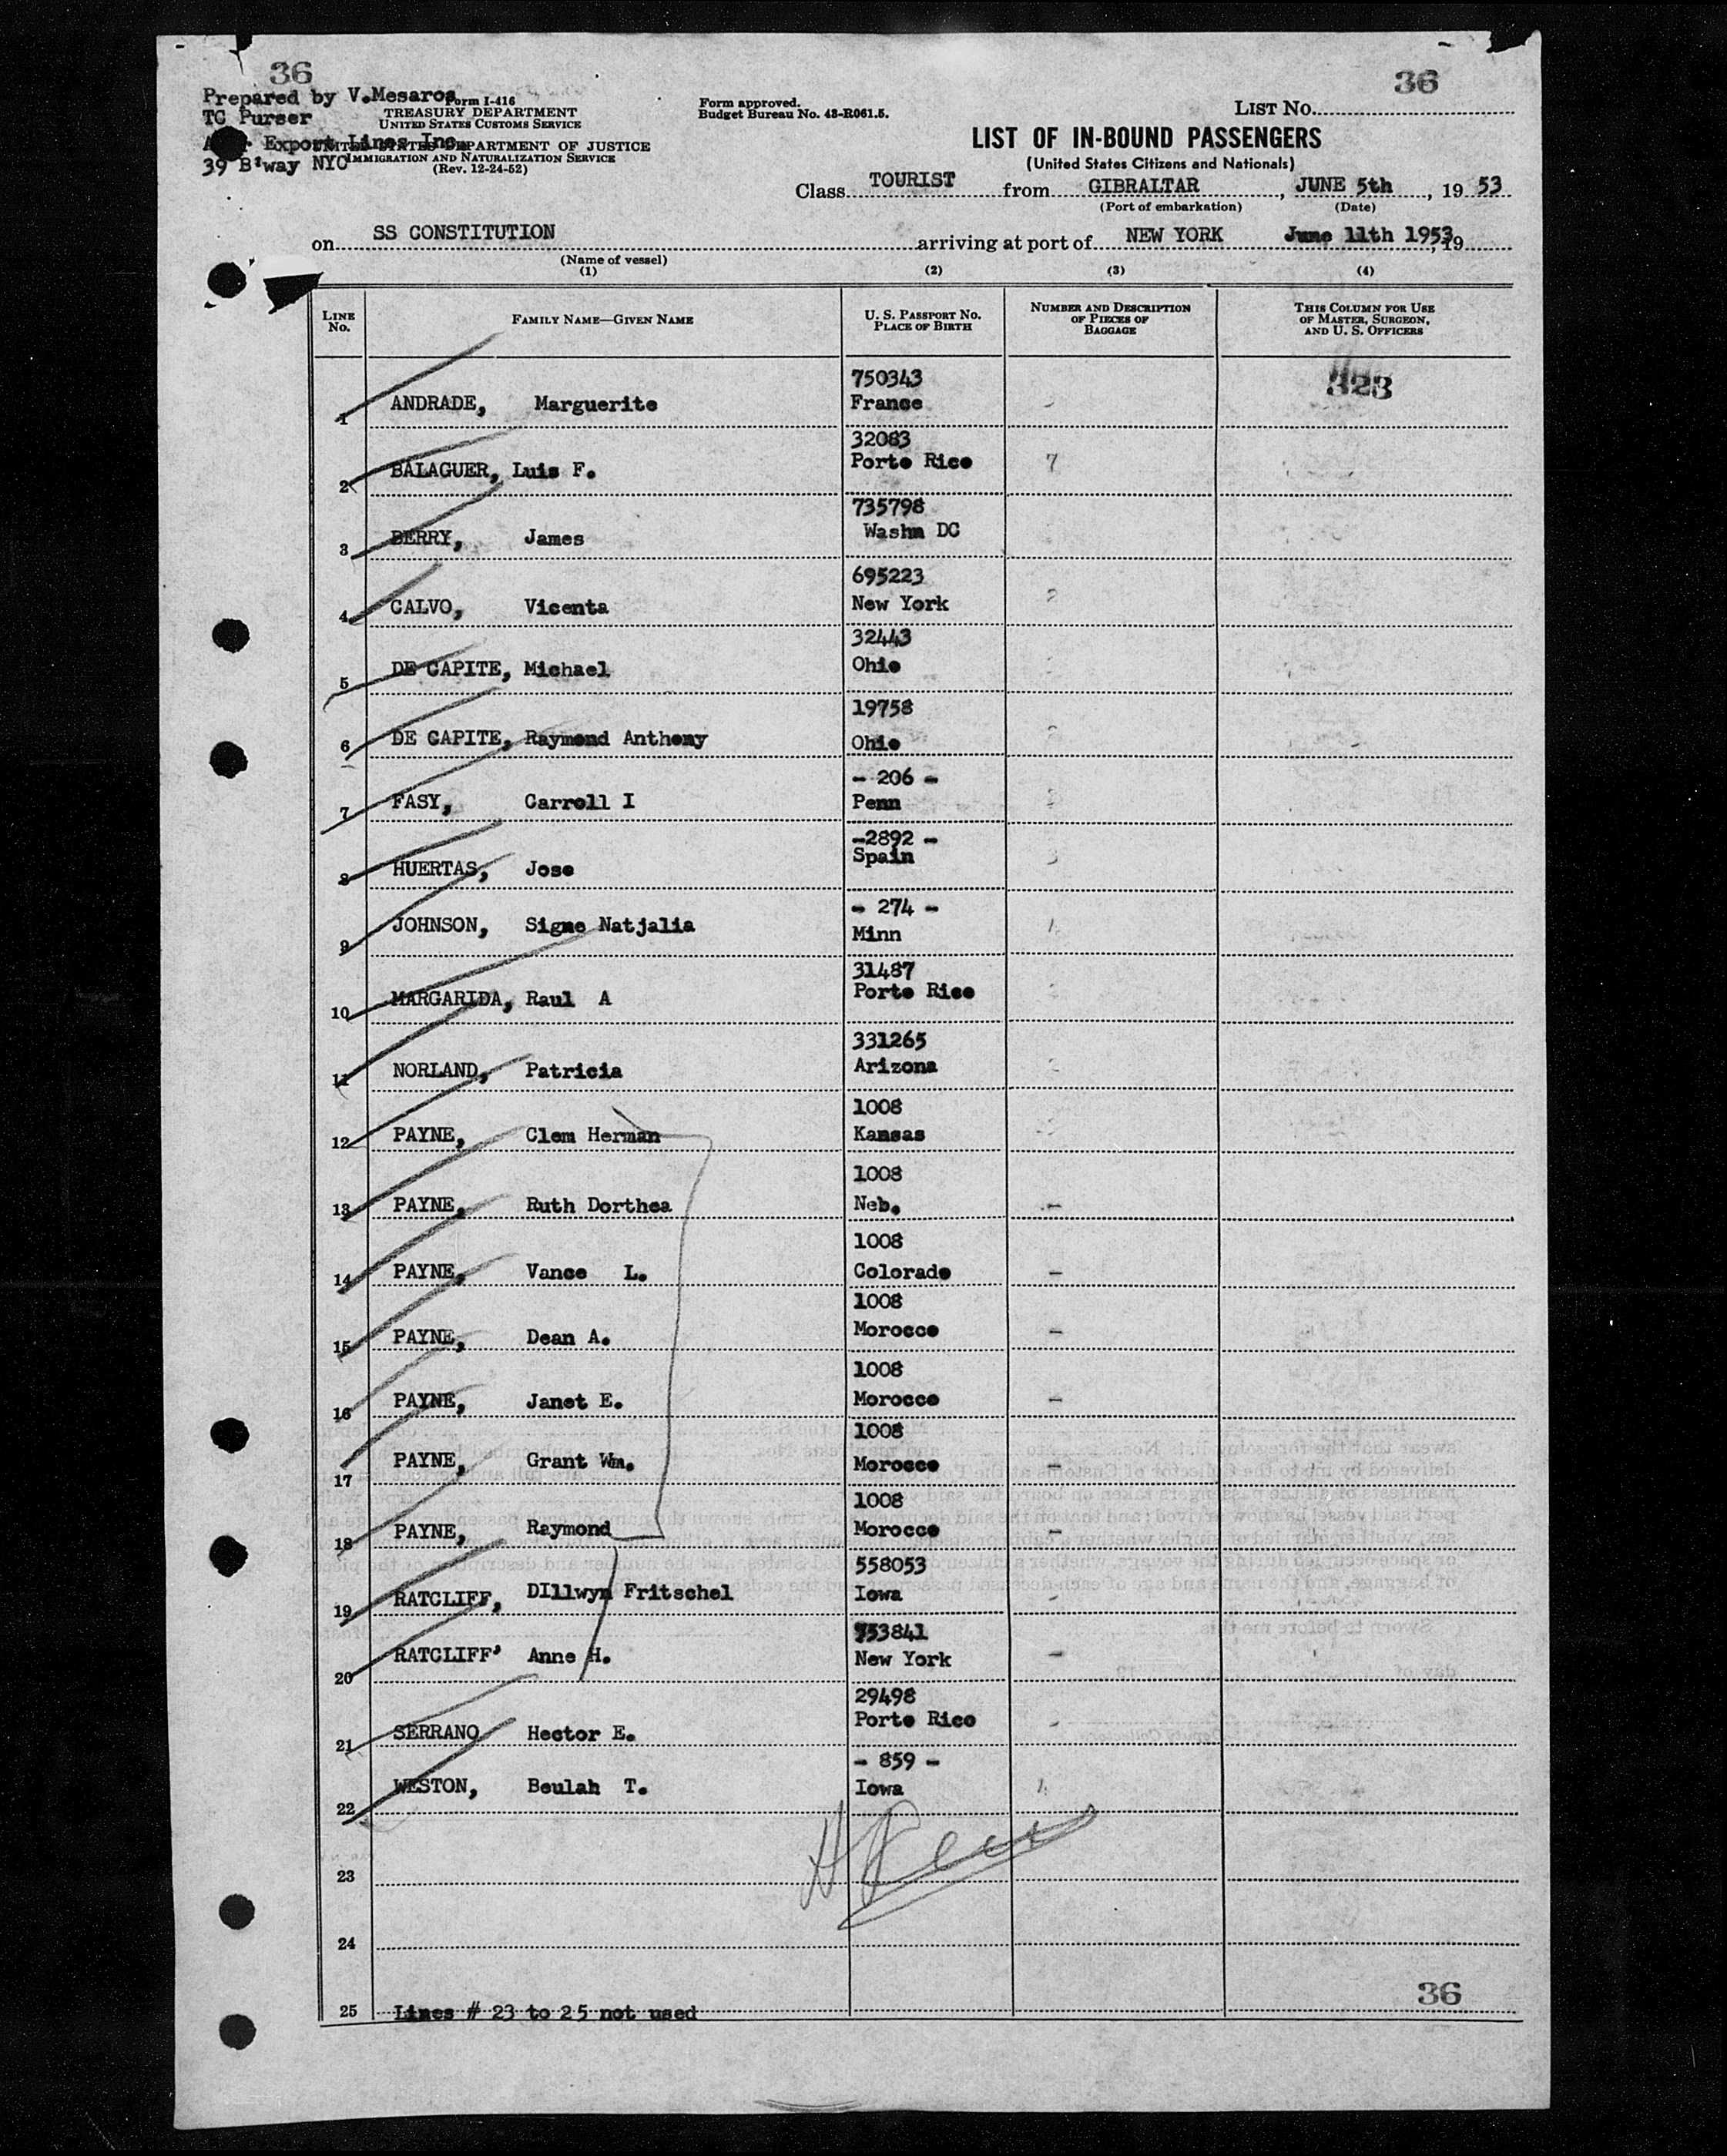 36
36
Prepared by V.Mesaros
Form I-416
TC Purser
TREASURY DEPARTMENT
UNITED STATES CUSTOMS SERVICE
Export Lines Inc.
UNITED STATES DEPARTMENT OF JUSTICE
39 B'way NYC
IMMIGRATION AND NATURALIZATION SERVICE
(Rev. 12-24-52)
Form approved.
Budget Bureau No. 43-R061.5.
LIST NO.
LIST OF IN-BOUND PASSENGERS
(United States Citizens and Nationals)
Class TOURIST from GIBRALTAR, JUNE 5th, 19 53
(Port of embarkation) (Date)
on SS CONSTITUTION arriving at port of NEW YORK June 11th 1953, 19
(Name of vessel)
(1) (2) (3) (4)
LINE NO. FAMILY NAME—GIVEN NAME U. S. PASSPORT NO. PLACE OF BIRTH NUMBER AND DESCRIPTION OF PIECES OF BAGGAGE THIS COLUMN FOR USE OF MASTER, SURGEON, AND U. S. OFFICERS
323
750343
1 ANDRADE, Marguerite France
32083
2 BALAGUER, Luis F. Porto Rico 7
735798
3 BERRY, James Washn DC
695223
4 CALVO, Vicenta New York 2
32443
5 DE CAPITE, Michael Ohio
19758
6 DE CAPITE, Raymond Anthony Ohio
- 206 -
7 FASY, Carroll I Penn
-2892 -
8 HUERTAS, Jose Spain 3
- 274 -
9 JOHNSON, Signe Natjalia Minn 1
31487
10 MARGARIDA, Raul A Porto Rico
331265
11 NORLAND, Patricia Arizona
1008
12 PAYNE, Clem Herman Kansas
1008
13 PAYNE, Ruth Dorthea Neb. -
1008
14 PAYNE, Vance L. Colorado -
1008
15 PAYNE, Dean A. Morocco -
1008
16 PAYNE, Janet E. Morocco -
1008
17 PAYNE, Grant Wm. Morocco -
1008
18 PAYNE, Raymond Morocco -
558053
19 RATCLIFF, DIllwyn Fritschel Iowa
53841
20 RATCLIFF' Anne H. New York -
29498
21 SERRANO, Hector E. Porto Rico
- 859 -
22 WESTON, Beulah T. Iowa 1
23
24
36
25 Lines # 23 to 25 not used